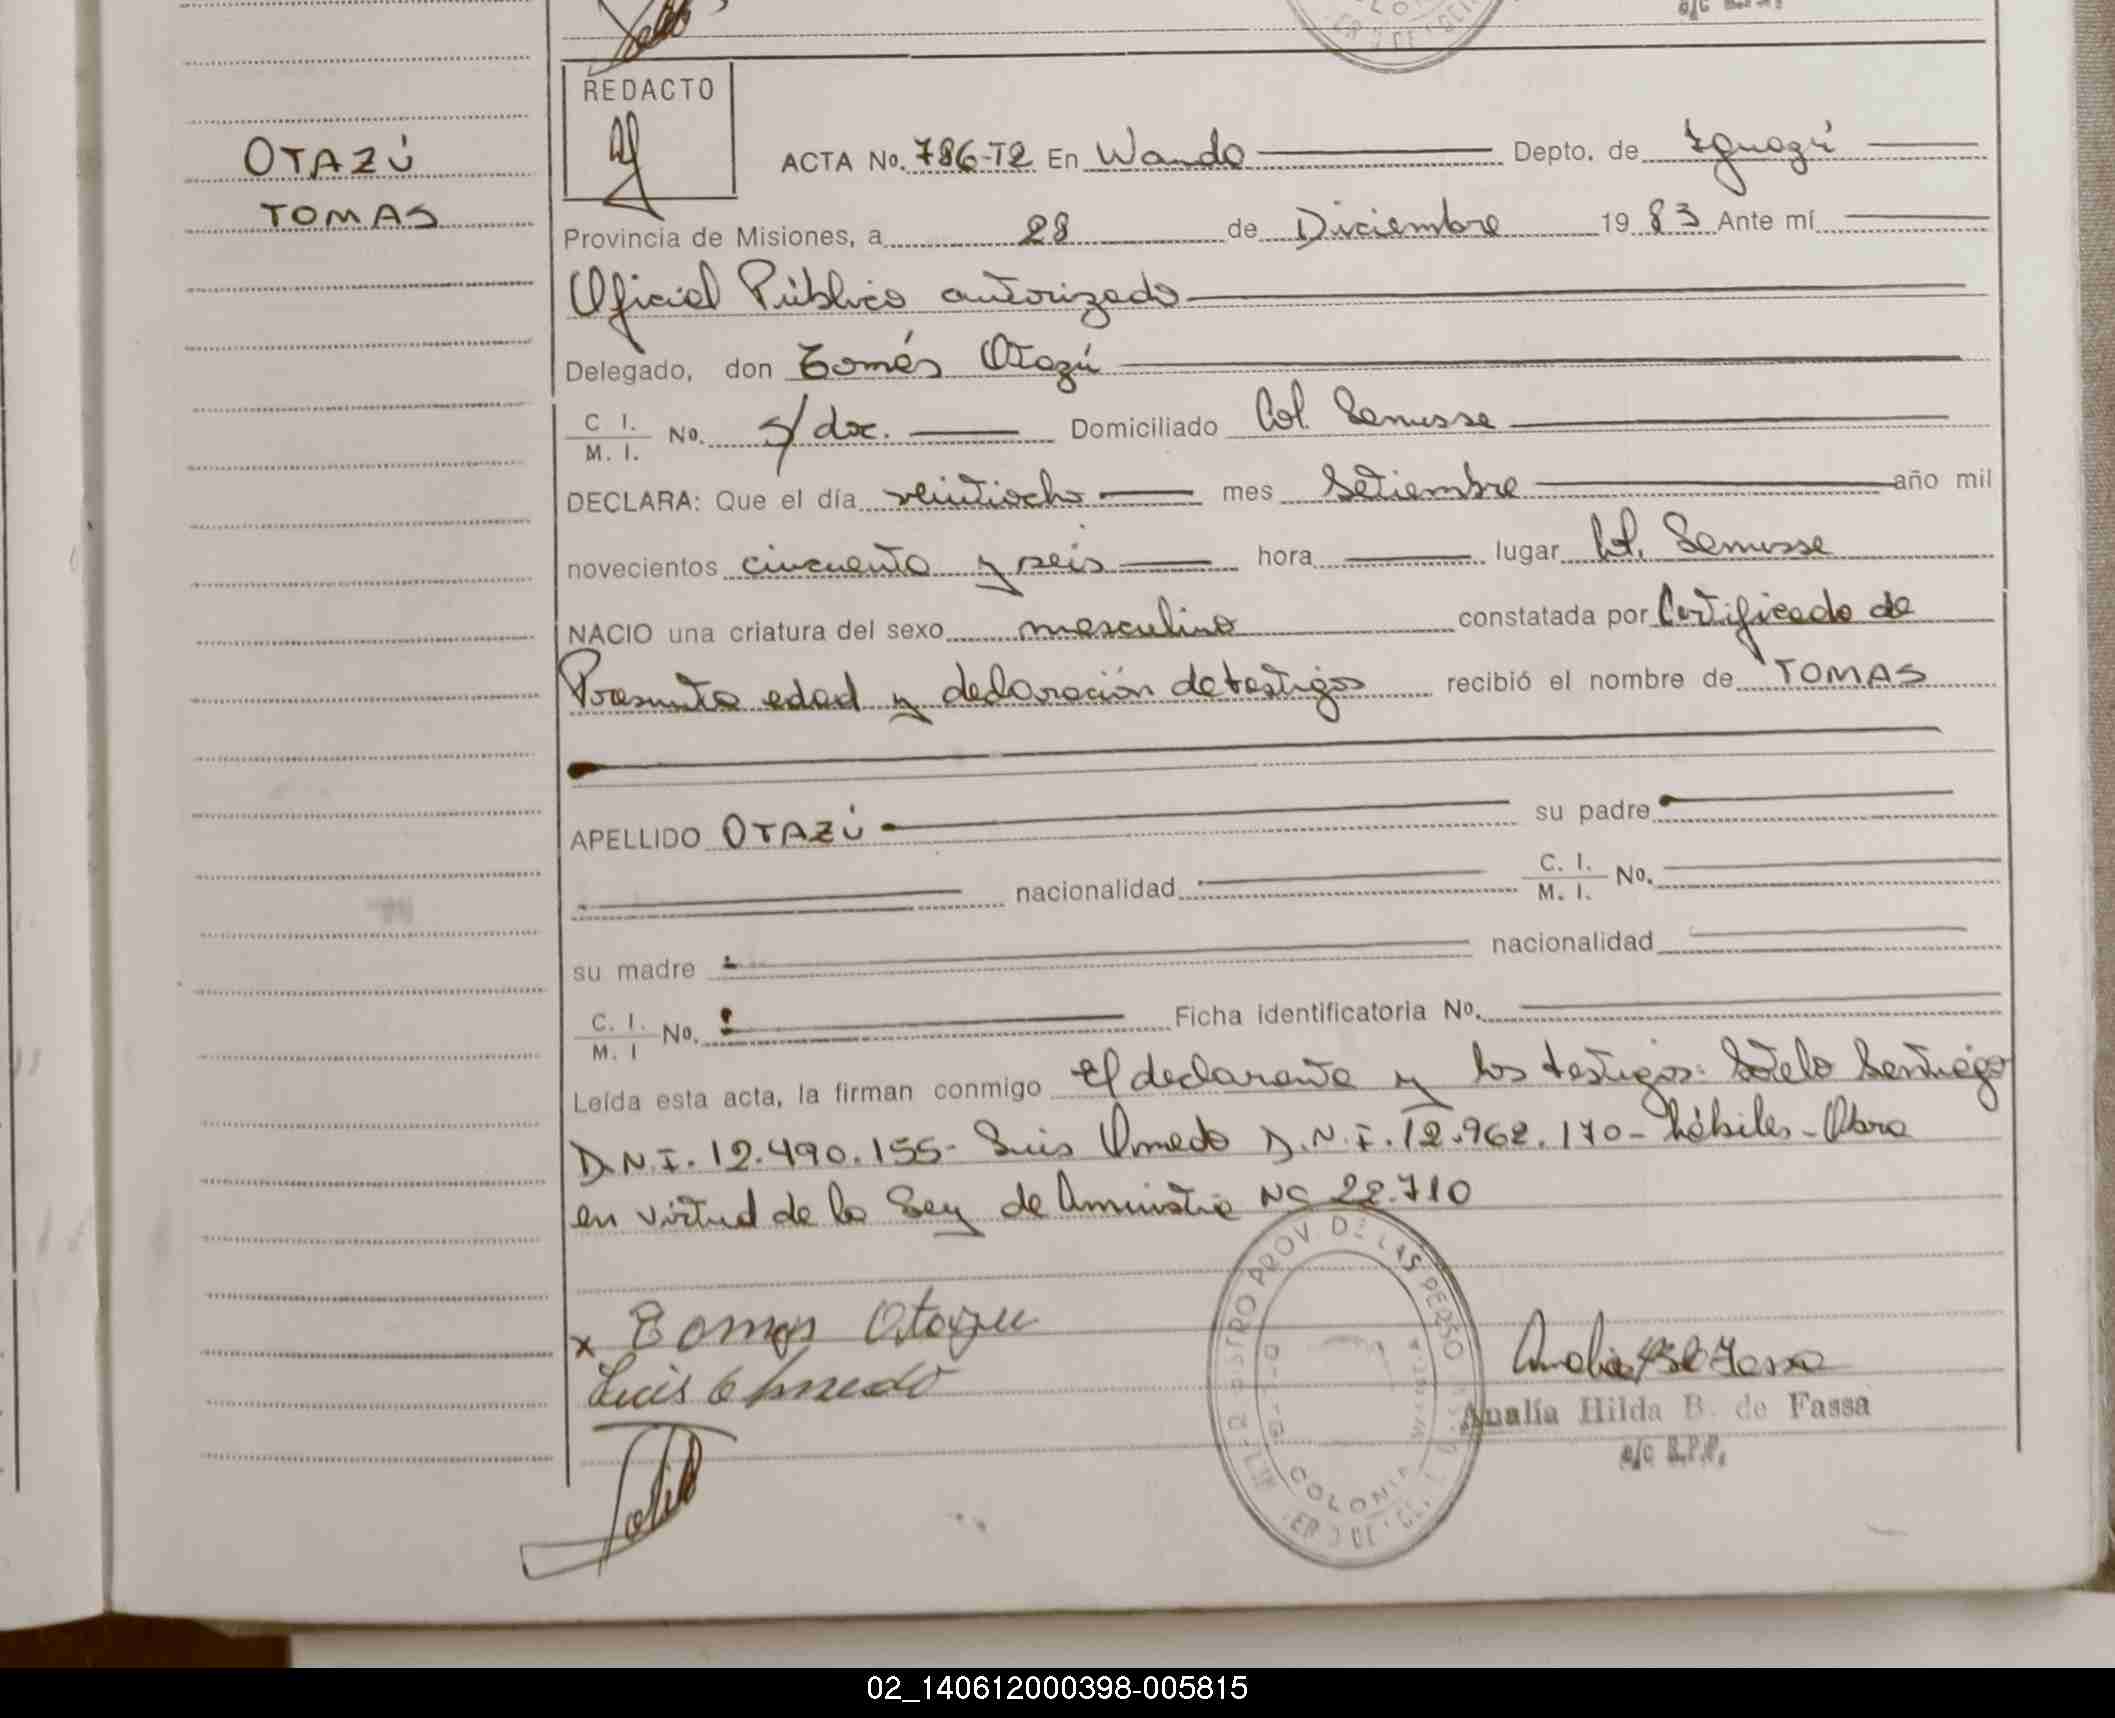 OTAZÚ
TOMAS
REDACTO
ACTA No. 786-T2 En Wanda Depto. de Iguazú
Provincia de Misiones, a 28 de Diciembre 1983 Ante mí
Oficial Público autorizado
Delegado, don Tomás Otazú
C. I. / M. I. No. s/doc. Domiciliado Col. Lanusse
DECLARA: Que el día veintiocho mes Setiembre año mil
novecientos cincuenta y seis hora lugar Col. Lanusse
NACIO una criatura del sexo masculino constatada por Certificado de
Presunta edad y declaración de testigos recibió el nombre de TOMAS
APELLIDO OTAZÚ su padre
nacionalidad C. I. / M. I. No.
su madre nacionalidad
C. I. / M. I No. Ficha identificatoria No.
Leída esta acta, la firman conmigo El declarante y los testigos: Sotelo Santiago
D.N.I. 12.490.155- Luis Olmedo D.N.I. 12.962.170- hábiles- Obra
en virtud de la Ley de Aministia Nº 22.710
x Tomas Otazu
Luis Olmedo
PROV. DE LAS PERSO
COLONIA
Analía Hilda B. de Fassa
a/c R.P.P.
02_140612000398-005815